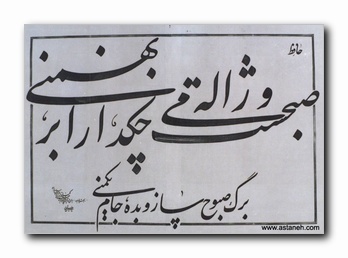 حافظ
صبحست و ژاله می چکد از ابر بهمنی
برگ صبوح ساز و بده جام یکمنی
www.astaneh.com